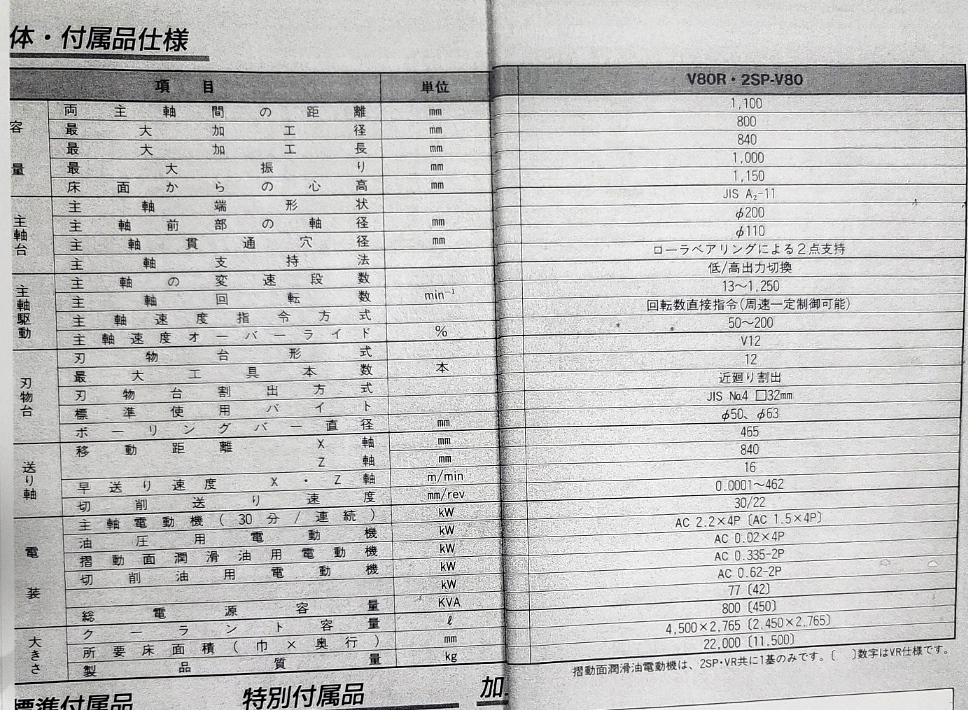 体・付属品仕様
項目 単位 V80R・2SP-V80
容量 両主軸間の距離 mm 1,100
最大加工径 mm 800
最大加工長 mm 840
最大振り mm 1,000
床面からの心高 mm 1,150
主軸台 主軸端形状 JIS A₂-11
主軸前部の軸径 mm φ200
主軸貫通穴径 mm φ110
主軸支持法 ローラベアリングによる2点支持
主軸駆動 主軸の変速段数 低/高出力切換
主軸回転数 min⁻¹ 13〜1,250
主軸速度指令方式 回転数直接指令(周速一定制御可能)
主軸速度オーバーライド % 50〜200
刃物台 刃物台形式 V12
最大工具本数 本 12
刃物台割出方式 近廻り割出
標準使用バイト JIS №4 □32mm
ボーリングバー直径 mm φ50、φ63
送り軸 移動距離 X軸 mm 465
Z軸 mm 840
早送り速度 X・Z軸 m/min 16
切削送り速度 mm/rev 0.0001〜462
電装 主軸電動機(30分/連続) kW 30/22
油圧用電動機 kW AC 2.2×4P〔AC 1.5×4P〕
摺動面潤滑油用電動機 kW AC 0.02×4P
切削油用電動機 kW AC 0.335-2P
kW AC 0.62-2P
総電源容量 KVA 77〔42〕
クーラント容量 ℓ 800〔450〕
大きさ 所要床面積(巾×奥行) mm 4,500×2,765〔2,450×2,765〕
製品質量 kg 22,000〔11,500〕
摺動面潤滑油電動機は、2SP・VR共に1基のみです。〔 〕数字はVR仕様です。
標準付属品 特別付属品 加